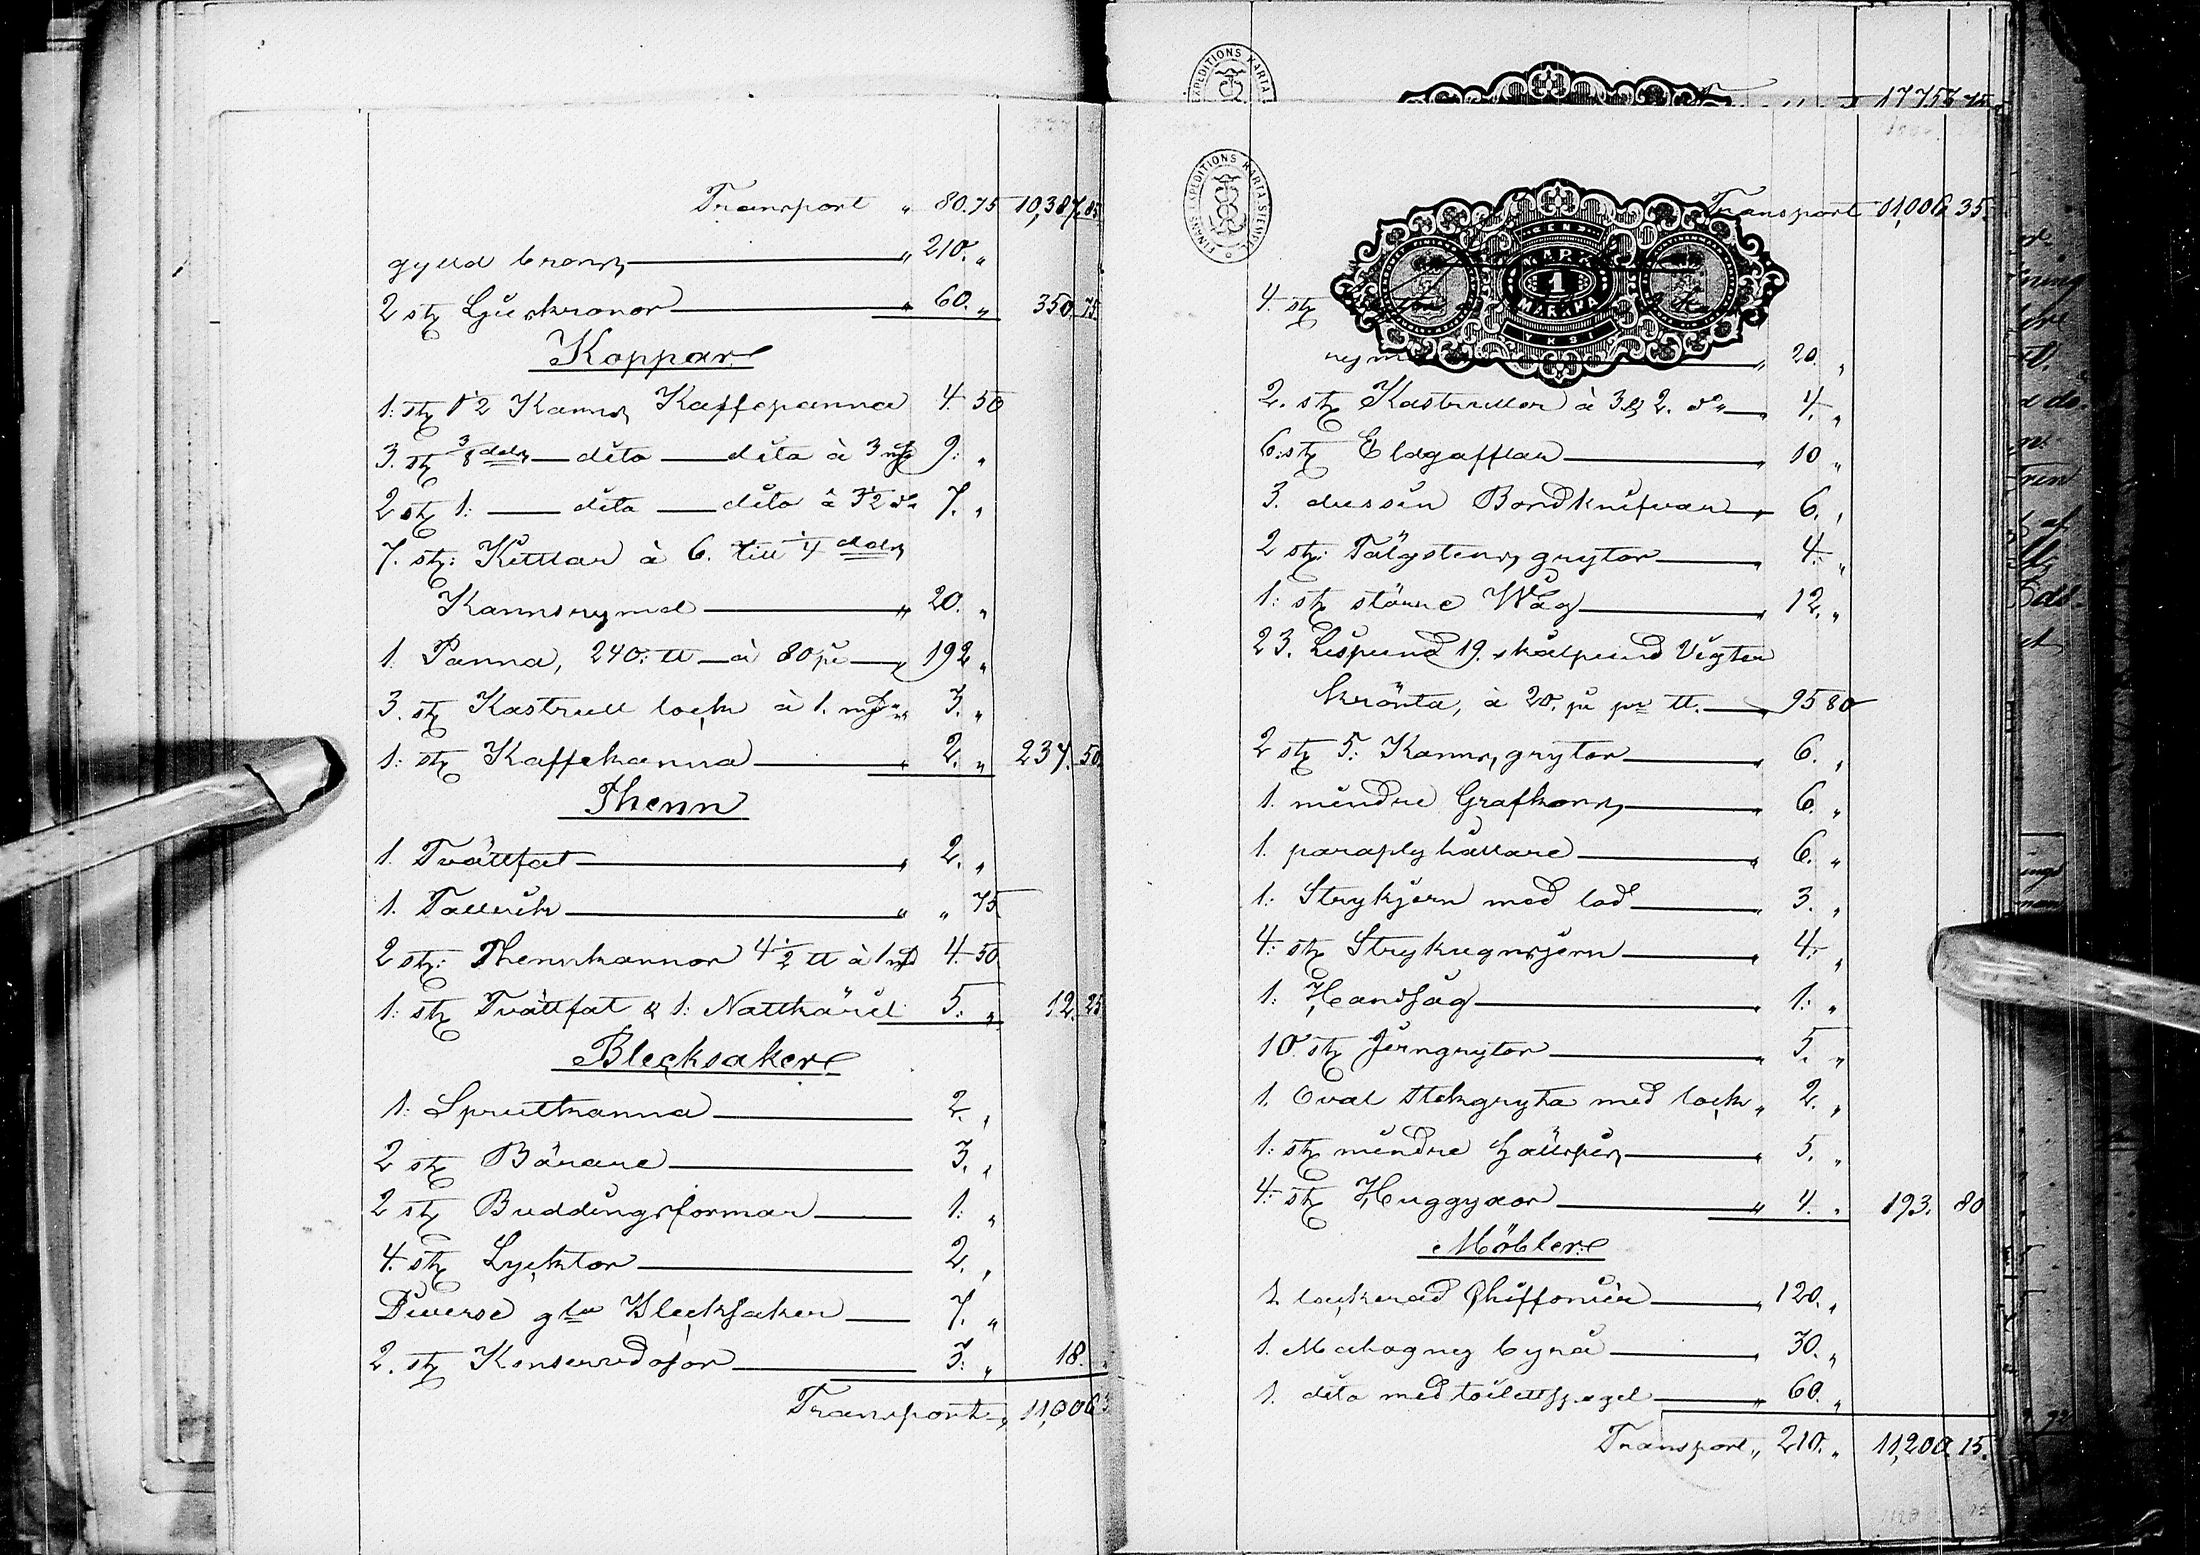 Transport " 80.75 10,387.85
gylld brons " 210. "
2 st. Ljuskronor " 60. " 350.75.
Koppar
1: st. Kanns Kaffepanna 4.50
3. st. dito dito à 3 9: "
2 st. 1: dito dito à 3½ 7. "
7. st: Kittlar à 6. till
Kannsrymd " 20. "
1. Panna, 240. ℔ à 80 pi " 192 "
3. st. Kastrull lock à 1. 3. "
1: st. Kaffekanna " 2. " 237.50.
Thenn
1. Tvättfat " 2. "
1. Tallrik " " 75
2 st: Thennkannor 4½ ℔ à 1 4.50
1: st. Tvättfat & 1: Nattkäril 5: " 12.25
Blecksaker
1: Sprutkanna 2. "
2 st. Bärare 3. "
2 st. Buddingsformar 1: "
4. st. Lycktor 2. "
Diverse gla Blecksaker 7. "
2. st. Konservdosor 3. " 18. "
Transport " 11,006
FINANS EXPEDITIONS KARTA
17756 75
FINANS EXPEDITIONS KARTA SIGILLATA
Transport 11,006.35.
MARK
1
MARKKA
YKSI
4. st.
20. "
2. st. Kastruller à 3 & 2. do " 4. "
6. st. Eldgafflar " 10 "
3. dussin Bordknifvar " 6. "
2 st: Täljstens grytor " 4. "
1: st. större Wåg " 12. "
23. Lispund 19. skålpund Vigter
krönta, à 20. pi pr ℔. " 95 80
2 st. 5: Kanns grytor " 6. "
1. mindre Grafkors " 6. "
1. paraply hållare " 6. "
1: Strykjern med lod " 3. "
4: st. Strykugnsjern " 4: "
1: Handsåg " 1: "
10. st. Jerngrytor " 5. "
1. Oval stekgryta med lock " 2. "
1: st. mindre hällspis " 5. "
4: st. Huggyxor " 4. " 193. 80
Möbler
1. lackerad Chiffonier " 120. "
1. Mahogny byrå " 30. "
1. dito med toilettspegel " 60. "
Transport " 210. " 11,200.15.